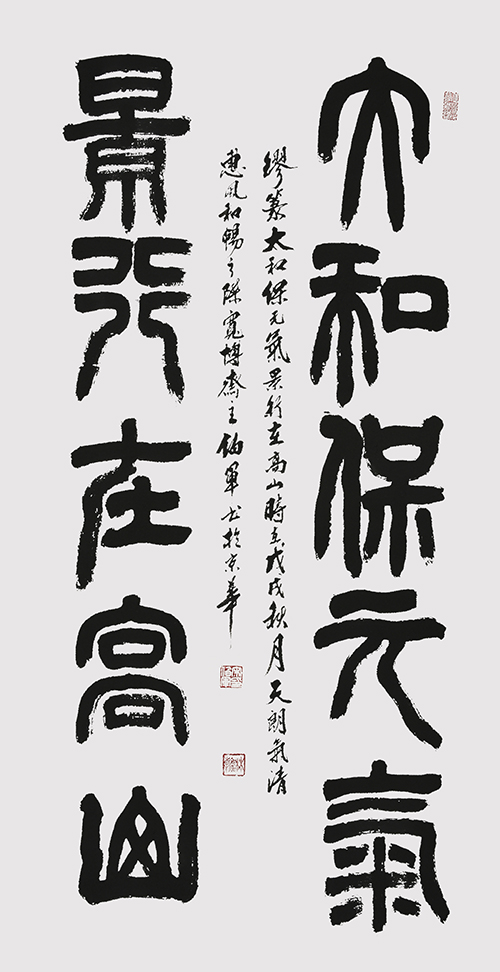 大和保元氣
繆篆太和保元氣景行在高山時在戊戌秋月天朗氣清
惠风和暢之際寬博齋主軍书於京華
景行在高山